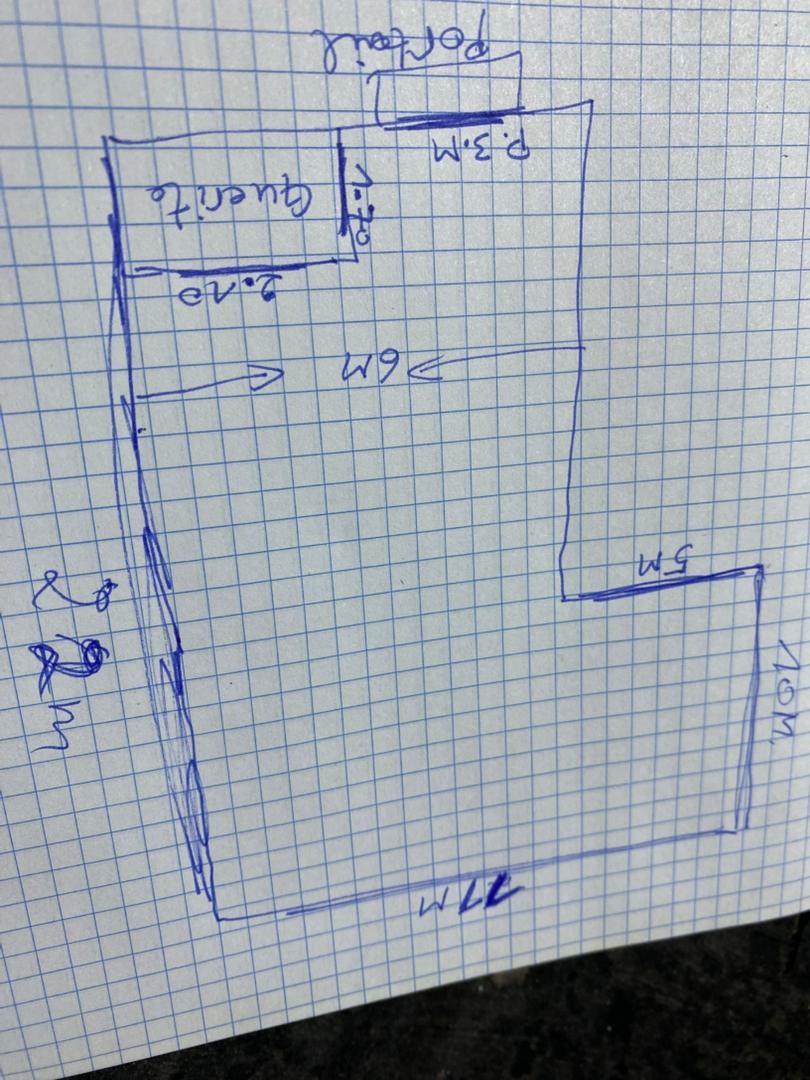 11M
10M.
22m
5M
6M
2.10
1.70
Guerite
P.3.M
Portail